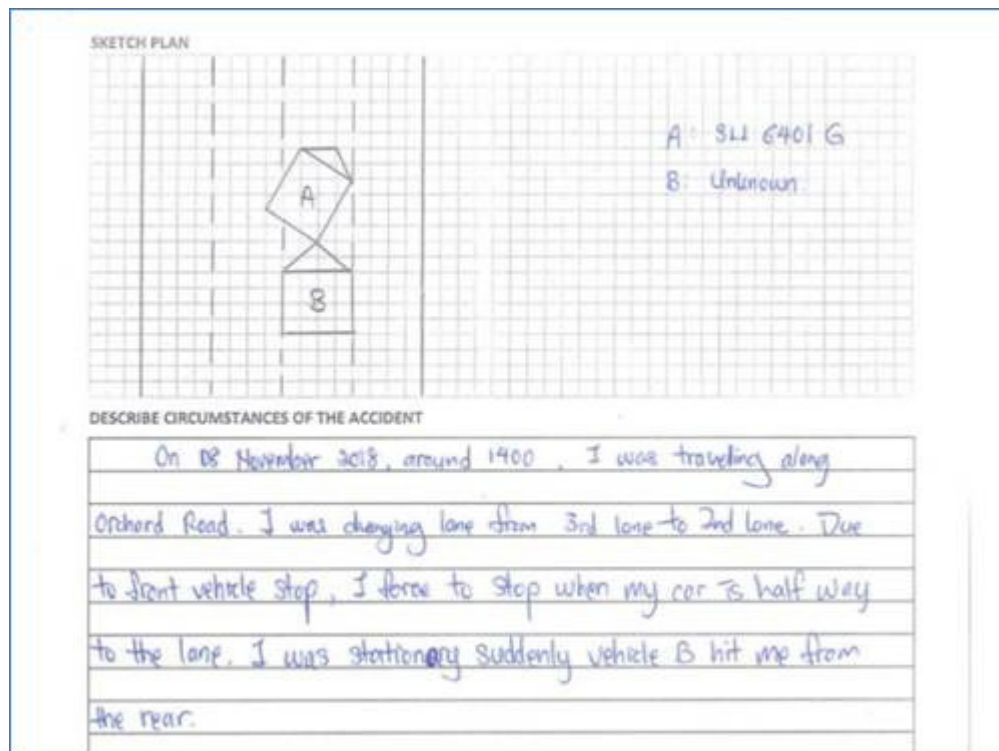 SKETCH PLAN
A: SLL 6401 G
B: Unknown
A
B
DESCRIBE CIRCUMSTANCES OF THE ACCIDENT
On 08 November 2018, around 1400, I was traveling along
Orchard Road. I was changing lane from 3rd lane to 2nd lane. Due
to front vehicle stop, I force to stop when my car is half way
to the lane. I was stationary suddenly vehicle B hit me from
the rear.